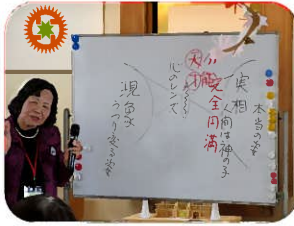 本当の姿
実相
人間は神の子
完全円満
心のレンズ
現象
うつり変る姿